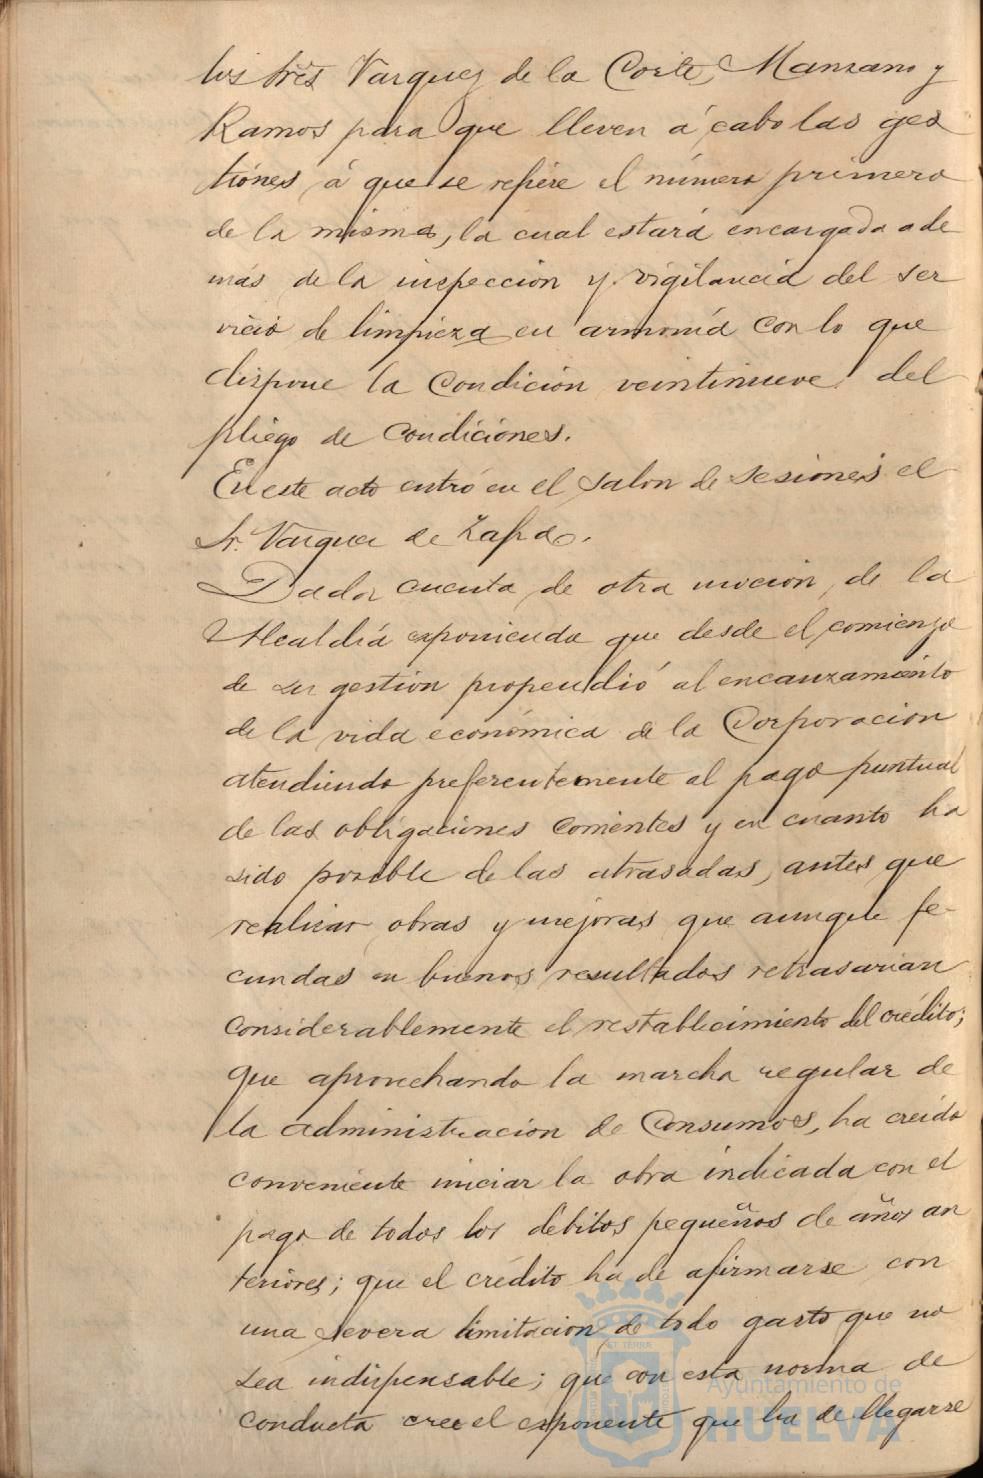 los tres Vazquez de la Corte, Manzano y
Ramos para que lleven á cabo las ges
tiónes á que se refiere el número primero
de la misma, la cual estará encargada ade
más de la inspección y vigilancia del ser
vicio de limpieza en armonía con lo que
dispone la Condición veintinueve del
pliego de condiciones.
En este acto entró en el salon de sesiones el
Sr. Vazquez de Zafra.
Dada cuenta de otra moción de la
Alcaldía exponiendo que desde el comienzo
de su gestión propendió al encauzamiento
de la vida económica de la Corporación
atendiendo preferentemente al pago puntual
de las obligaciones corrientes y en cuanto ha
sido posible de las atrasadas, antes que
realizar obras y mejoras que aunque fe-
cundas en buenos resultados retrasarian
considerablemente el restablecimiento del crédito;
que aprovechando la marcha regular de
la administración de Consumos, ha creido
conveniente iniciar la obra indicada con el
pago de todos los débitos pequeños de años an
teriores; que el crédito ha de afirmarse con
una severa limitación de todo gasto que no
sea indispensable; que con esta norma de
conducta cree el exponente que ha de llegarse
Ayuntamiento de
HUELVA